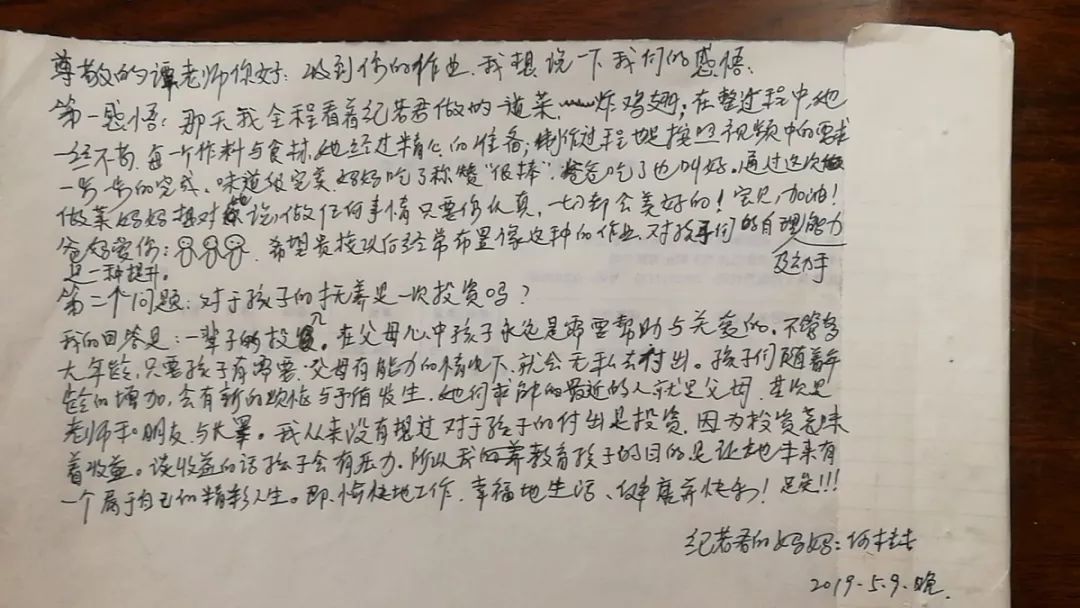 尊敬的谭老师你好：收到你的作业，我想说一下我们的感悟：
第一感悟：那天我全程看着纪若君做的道菜﹏炸鸡翅；在整过程中，她
一丝不苟，每一个作料与食材，她经过精心的准备；制作过程她按照视频中的要求
一步一步的完成、味道很完美，妈妈吃了称赞"很棒"，爸爸吃了也叫好。通过这次
做菜妈妈想对她说，做任何事情只要你认真，一切都会美好的！宝贝，加油！
爸妈爱你：希望贵校以后经常布置像这种的作业，对孩子们的自理能力
及动手
是一种提升。
第二个问题：对于孩子的抚养是一次投资吗？
我的回答是：一辈子的投资。在父母心中孩子永远是需要帮助与关爱的。不管多
大年龄，只要孩子有需要，父母有能力的情况下，就会无私去付出。孩子们随着年
龄的增加，会有新的烦恼与矛盾发生，她们求助的最近的人就是父母，其次是
老师和朋友与。我从来没有想过对于孩子的付出是投资，因为投资意味
着收益。谈收益的话孩子会有压力，所以我教育孩子的目的是让她未来有
一个属于自己的精彩人生。即：愉快地工作，幸福地生活、健康并快乐！足矣!!!
纪若君的妈妈：何
2019.5.9.晚.